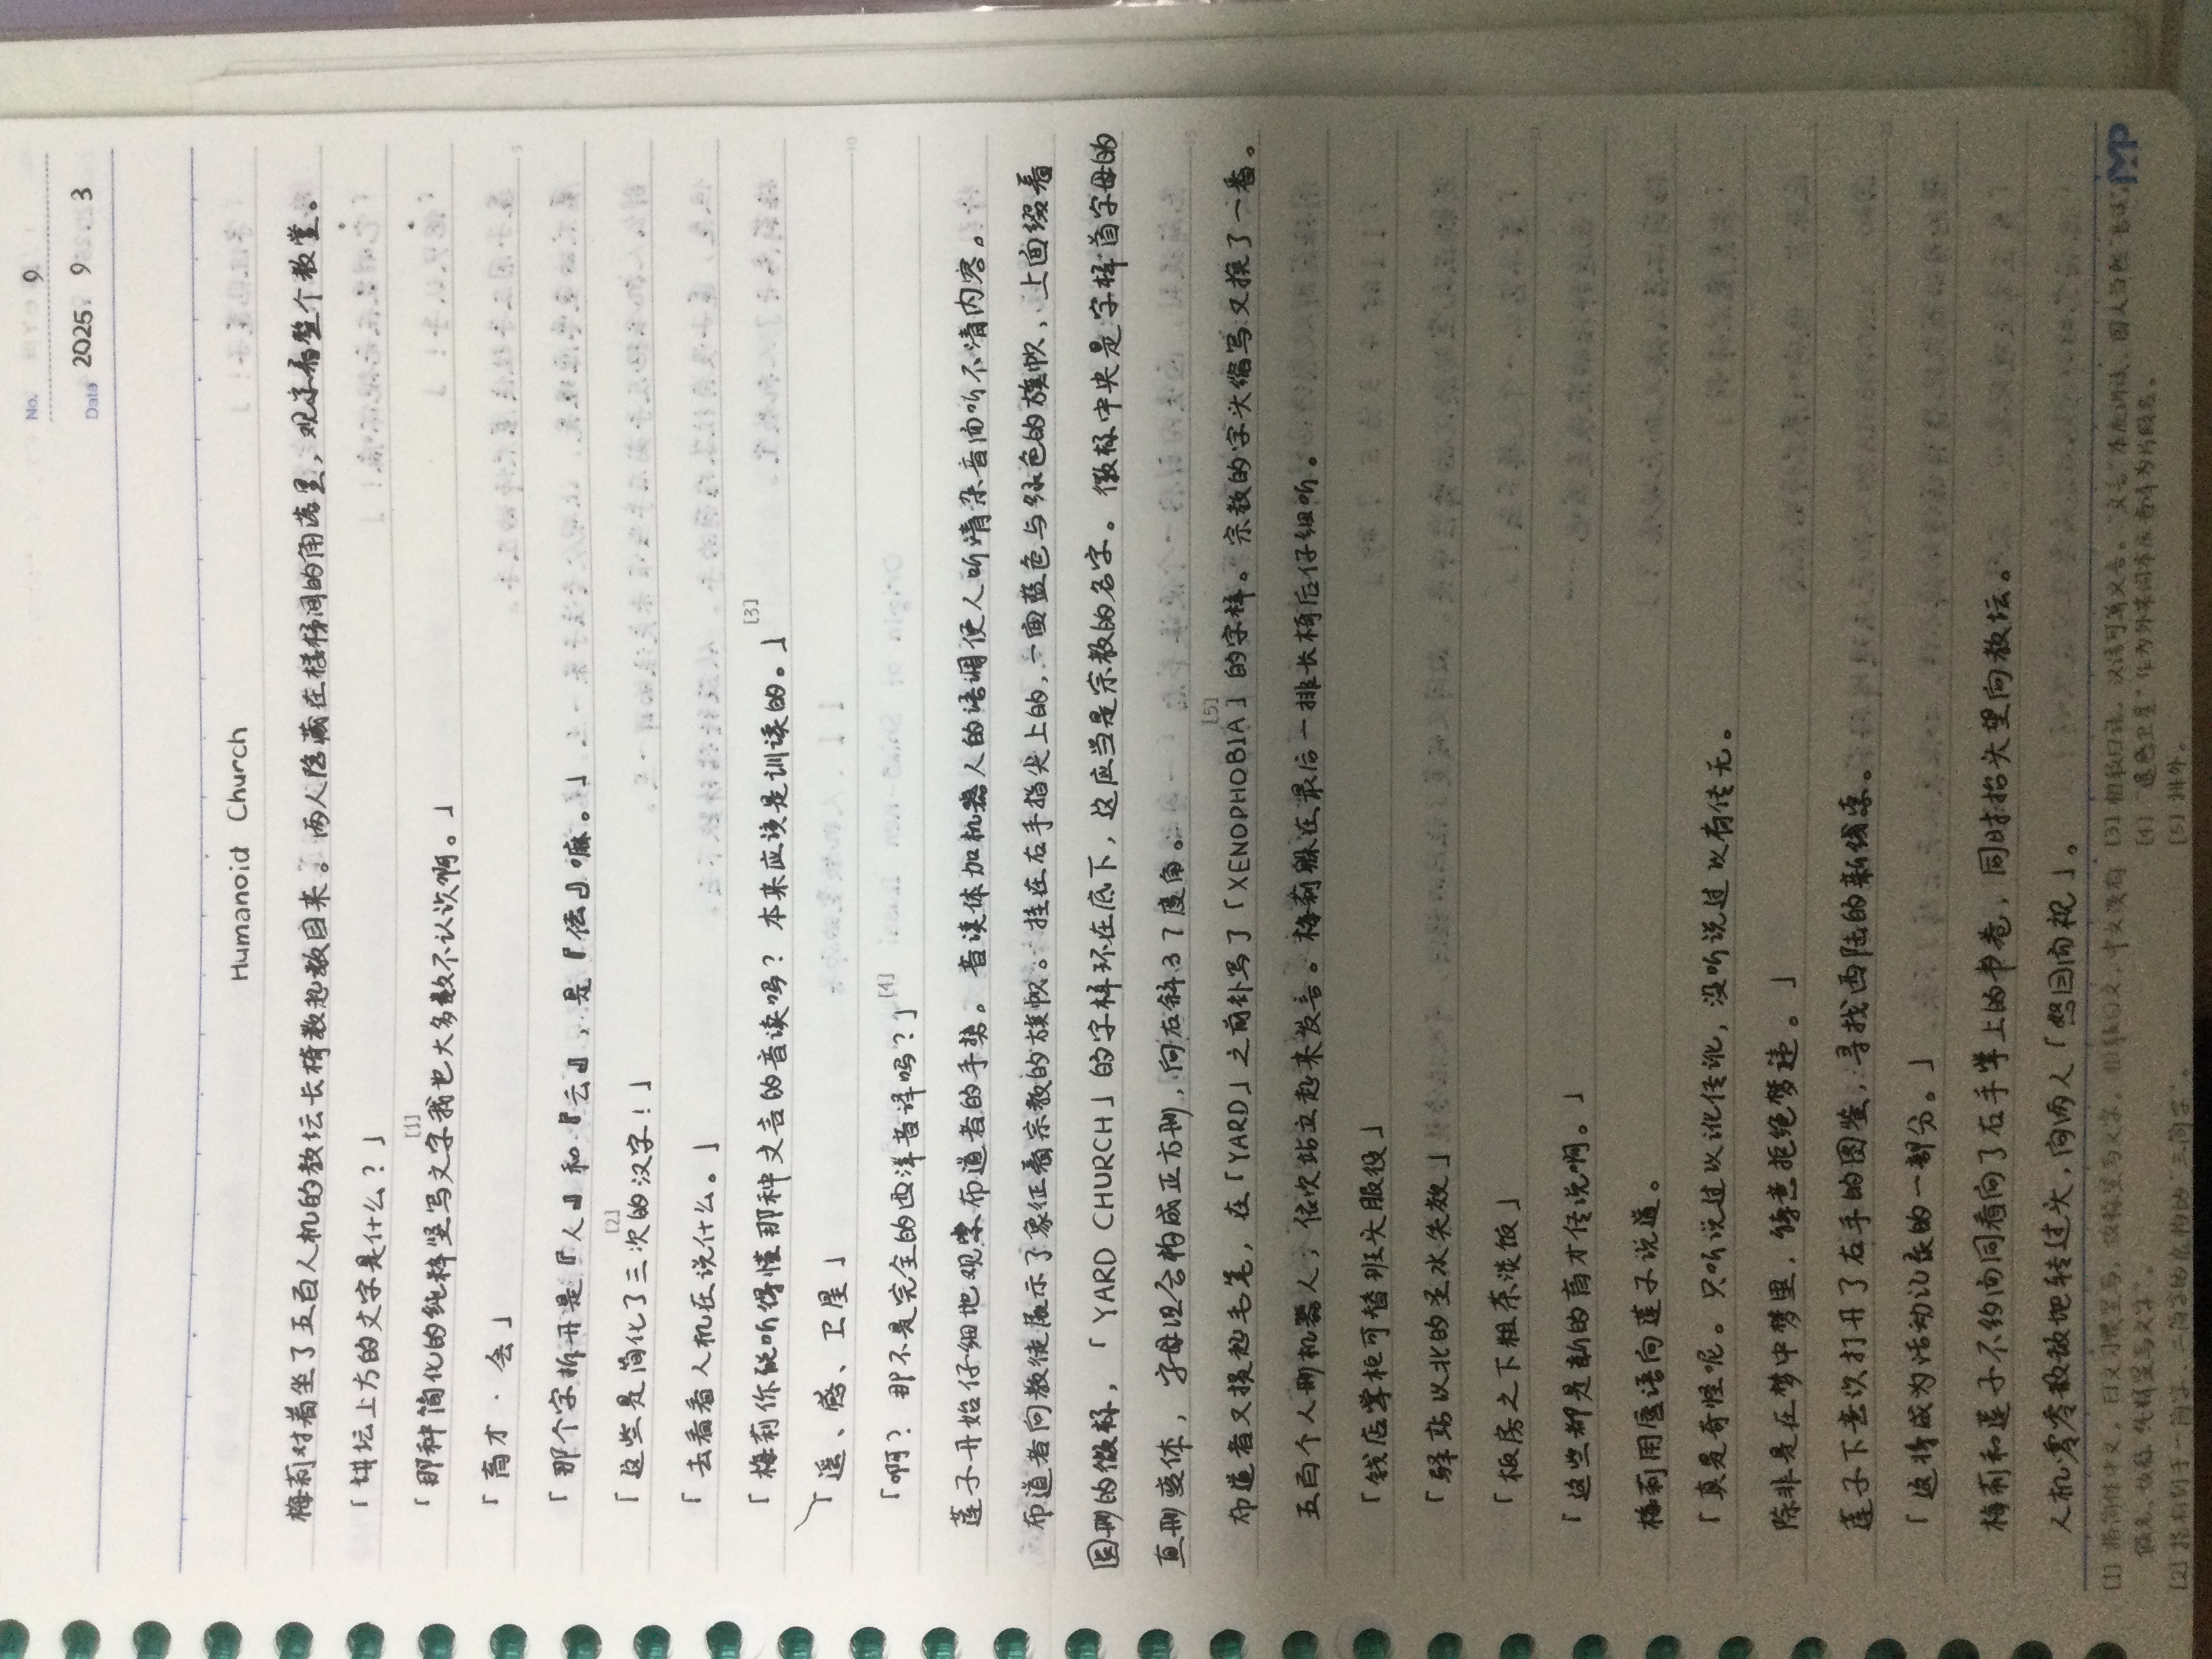 No. 9
Date 2025. 9. 3
Humanoid Church
梅莉对着坐了五百人机的教坛长椅数起数目来。两人隐藏在楼梯间的角落里，观察着整个教堂。
「讲坛上方的文字是什么？」
「那种简化的纯粹竖写文字[1]我也大多数不认识啊。」
「育才·会」
「那个字拆开是『人』和『云』，是『伝』嘛。」
「这些是简化了三次[2]的汉字！」
「去看看人机在说什么。」
「梅莉你能听得懂那种文言的音读吗？本来应该是训读的。」[3]
「遥、感、卫星」
「啊？那不是完全的西洋音译吗？」[4]
莲子开始仔细地观察布道者的手势。音读体加机器人的语调使人听清杂音而听不清内容。
布道者向教徒展示了象征着宗教的旗帜。挂在右手指尖上的，一面蓝色与绿色的旗帜，上面缀着
圆形的徽标，「YARD CHURCH」的字样环在底下，这应当是宗教的名字。徽标中央是字样首字母的
直形变体，字母组合构成正方形，向右斜37度角。
布道者又提起毛笔，在「YARD」之前补写了「XENOPHOBIA」[5]的字样。宗教的字头缩写又换了一番。
五百个人形机器人，依次站立起来发言。梅莉躲在最后一排长椅后仔细听。
「钱店掌柜可替班头服役」
「驿站以北的圣水失效」
「板房之下粗茶淡饭」
「这些都是新的育才传说啊。」
梅莉用唐语向莲子说道。
「真是奇怪呢。只听说过以讹传讹，没听说过以有传无。
除非是在梦中梦里，特意拒绝梦违。」
莲子下意识打开了右手的图鉴，寻找西陆的新线索。
「这将成为活动记录的一部分。」
梅莉和莲子不约而同看向了右手掌上的书卷，同时抬头望向教坛。
人机零零散散地转过头，向两人「怒目而视」。
[1] 指简体中文。日文习惯竖写，故称竖写文字。相较日文，中文没有
假名，故称"纯粹竖写文字"。
[2] 指相对于一简字、二简字的虚构的"三简字"。
[3] 相较口语，汉语可算文言。"文言"本应训读，国人当然"音读"。
[4] "遥感卫星"作为外来词本应音译为片假名。
[5] 排外。
MP